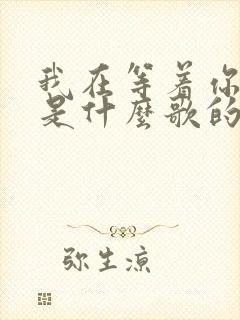 我在等着你
是什麽歌的
弥生凉